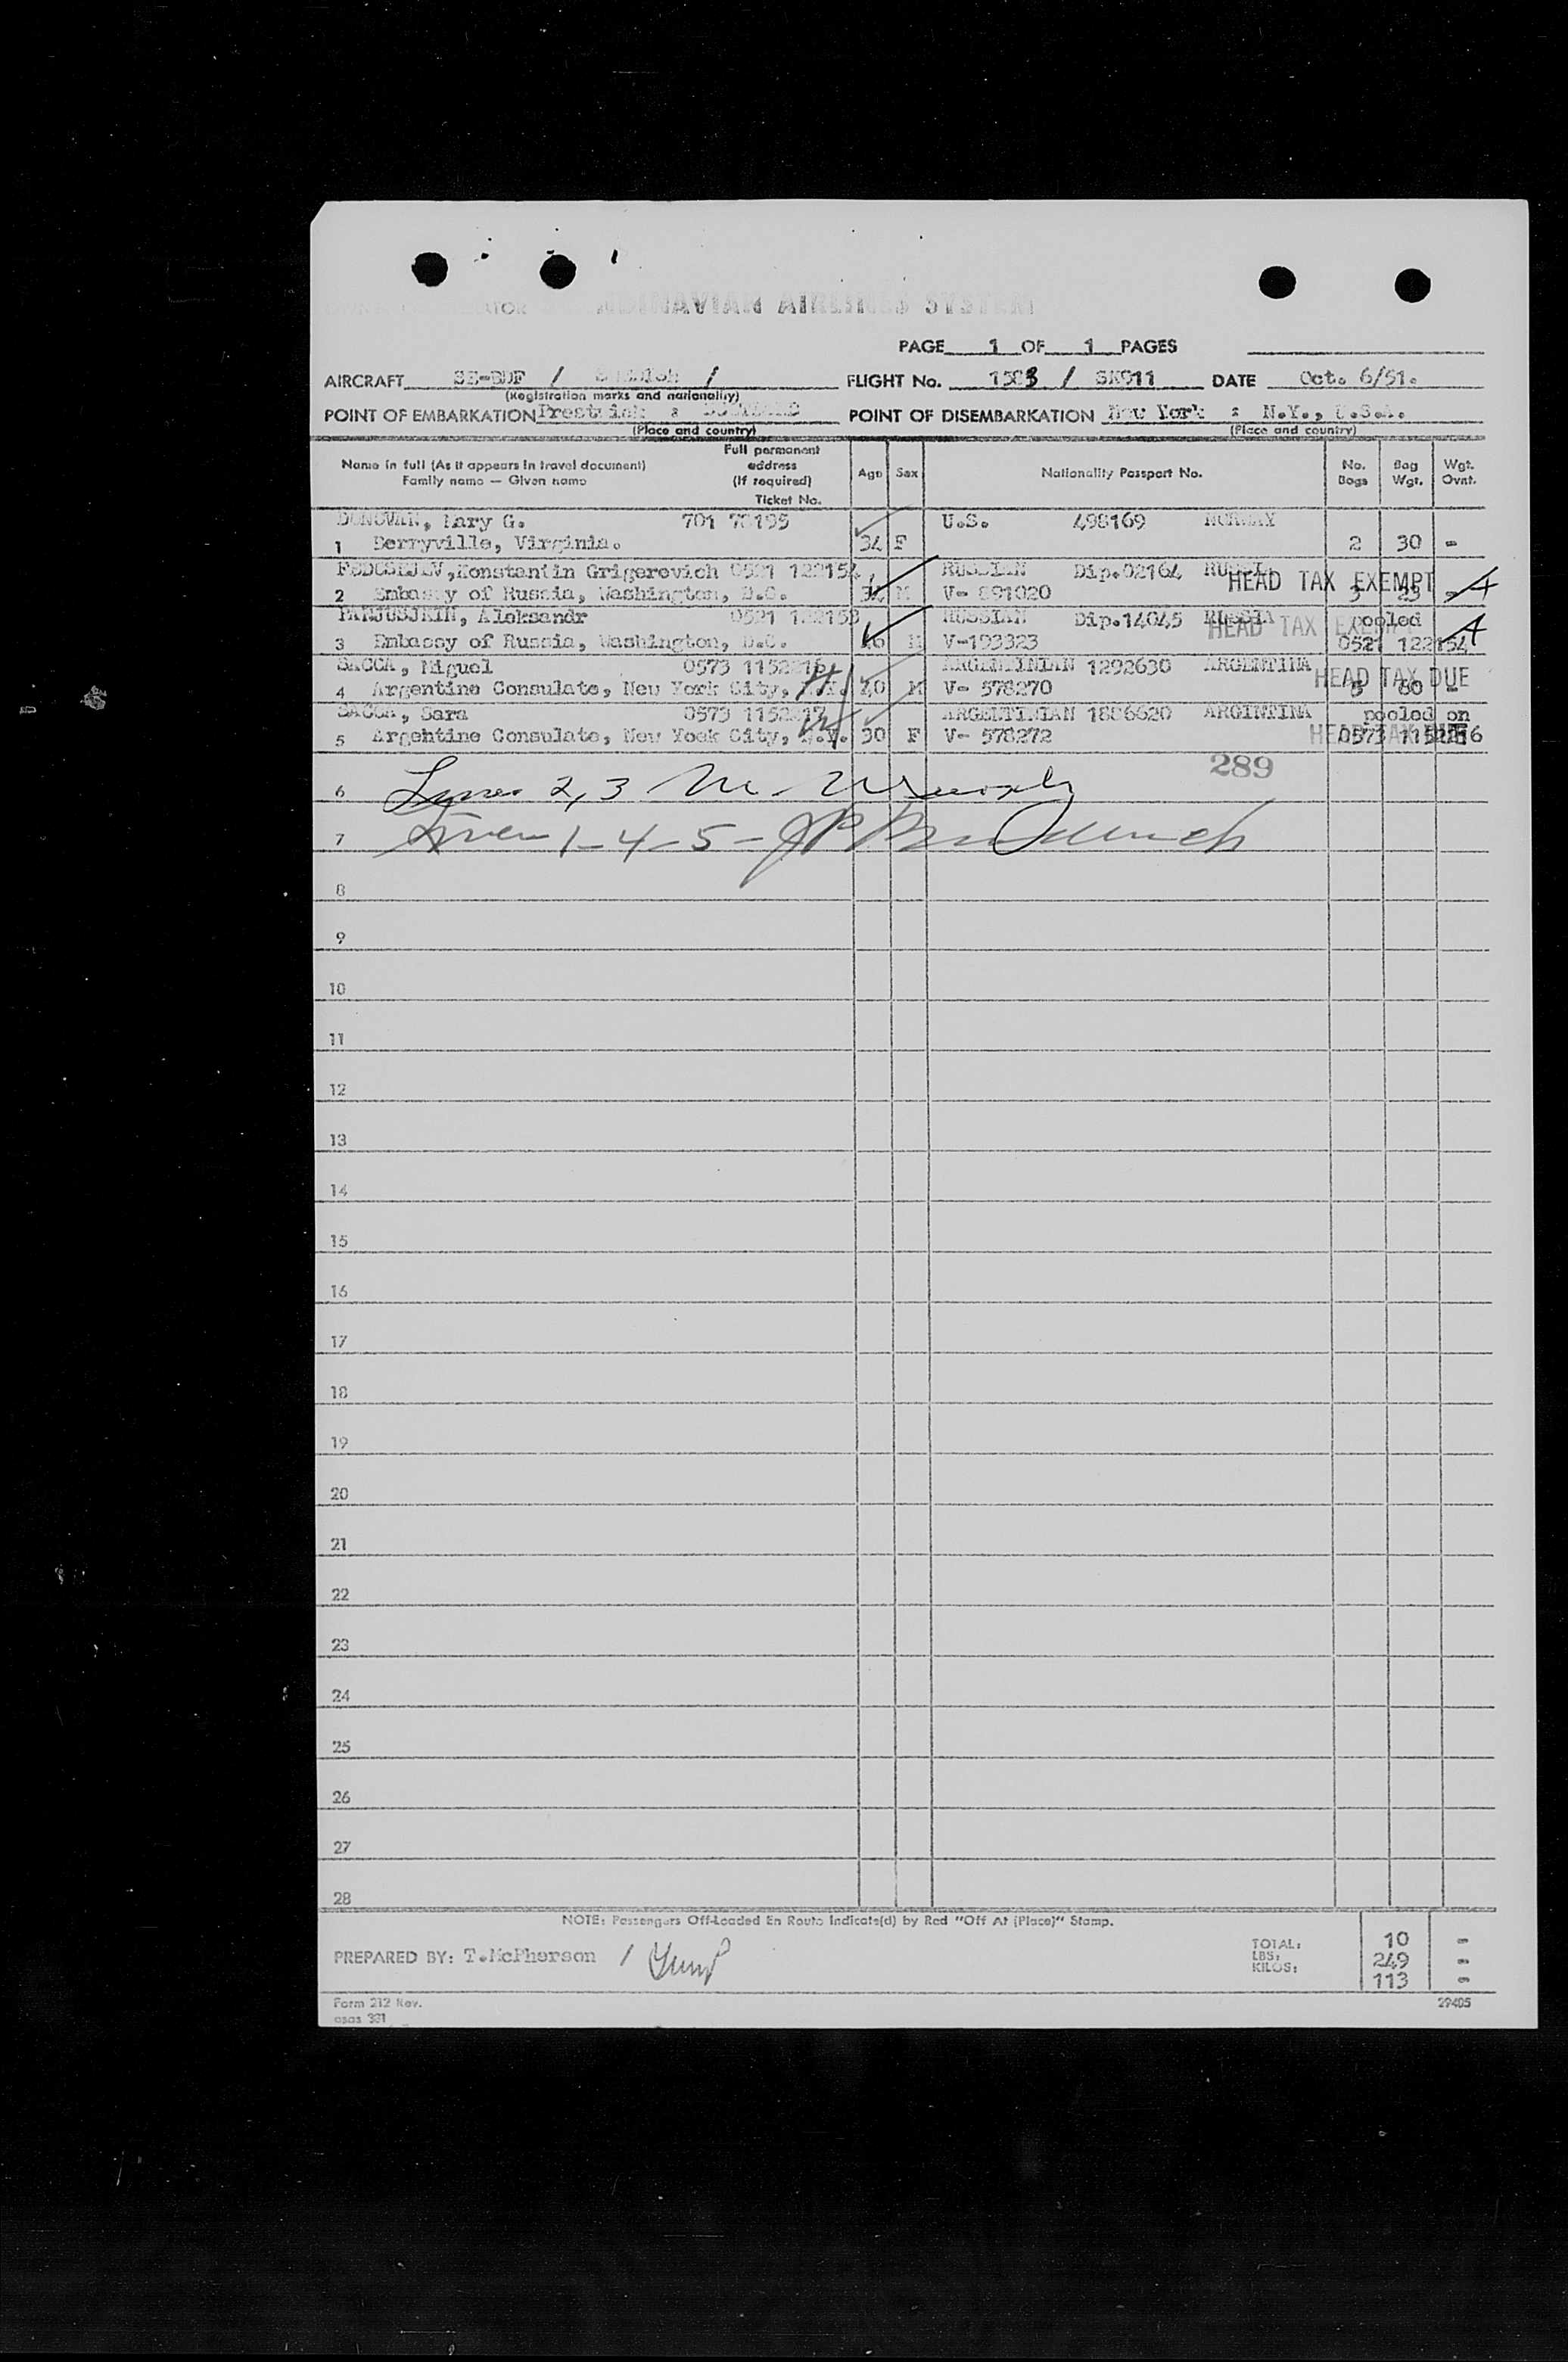 AIRLINES SYSTEM
PAGE 1 OF 1 PAGES
AIRCRAFT SE-BDF / / FLIGHT No. / SK911 DATE Oct. 6/51.
(Registration marks and nationality)
POINT OF EMBARKATION Prestwick : POINT OF DISEMBARKATION New York : N.Y., U.S.A.
(Place and country) (Place and country)
Name in full (As it appears in travel document) Family name — Given name Full permanent address (If required) Ticket No. Age Sex Nationality Passport No. No. Bags Bag Wgt. Wgt. Ovnt.
DONOVAN, Mary G. 701 U.S. 498169 NORWAY
1 Berryville, Virginia. 34 F 2 30 -
Konstantin Grigerevich 0521 122154 RUSSIAN Dip.02164 HEAD TAX EXEMPT
2 Embassy of Russia, Washington, D.C. M V- 891020
Aleksandr 0521 RUSSIAN Dip.14045 RUSSIA HEAD TAX EXEMPT pooled
3 Embassy of Russia, Washington, D.C. M V-193323 0521 122154
SACCA, Miguel 0573 ARGENTINIAN 1292630 ARGENTINA HEAD TAX DUE
4 Argentine Consulate, New York City, N.Y. 40 M V- 578270 5 60 -
SACCA, Sara 0573 ARGENTINIAN 1886620 ARGINTINA pooled on
5 Argehtine Consulate, New Yook City, N.Y. 30 F V- 578272 0573
289
6 Lines 2,3
7 Lines 1-4-5-
8
9
10
11
12
13
14
15
16
17
18
19
20
21
22
23
24
25
26
27
28
NOTE: Passengers Off-Loaded En Route Indicate(d) by Red "Off At (Place)" Stamp.
PREPARED BY: T.McPherson /
TOTAL: 10 -
LBS: 249 -
KILOS: 113 -
Form 212 Rev. 29405